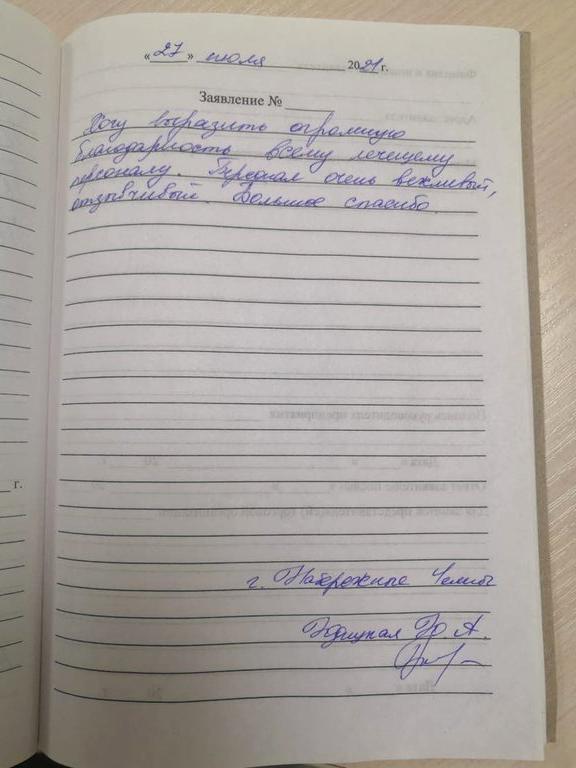 «27» июля 2021 г.
Заявление №
Хочу выразить огромную
благодарность всему лечещему
персоналу. Персонал очень вежливый,
отзывчивый. Большое спасибо.
г.
г. Набережные Челны
Ю. А.